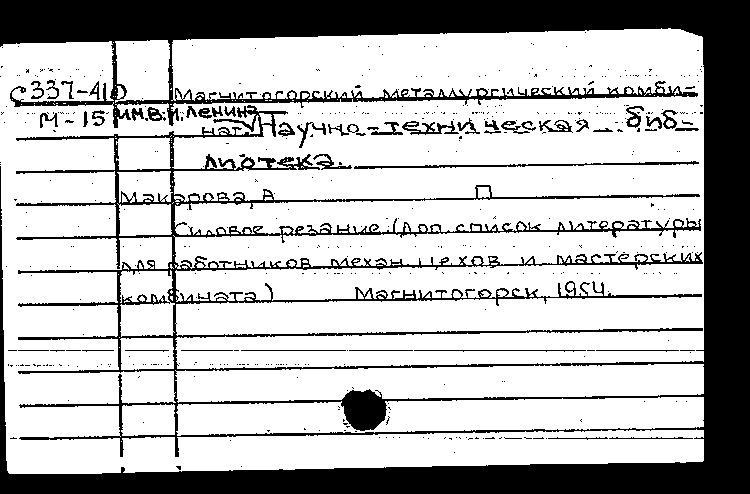 С337-410 Магнитогорский металлургический комби-
М-15 им.В.И.Ленина
нат. Научно-техническая биб-
лиотека.
Макарова, А
Силовое резание.(Доп список литературы
для работников механ цехов и мастерских
комбината) Магнитогорск, 1954.